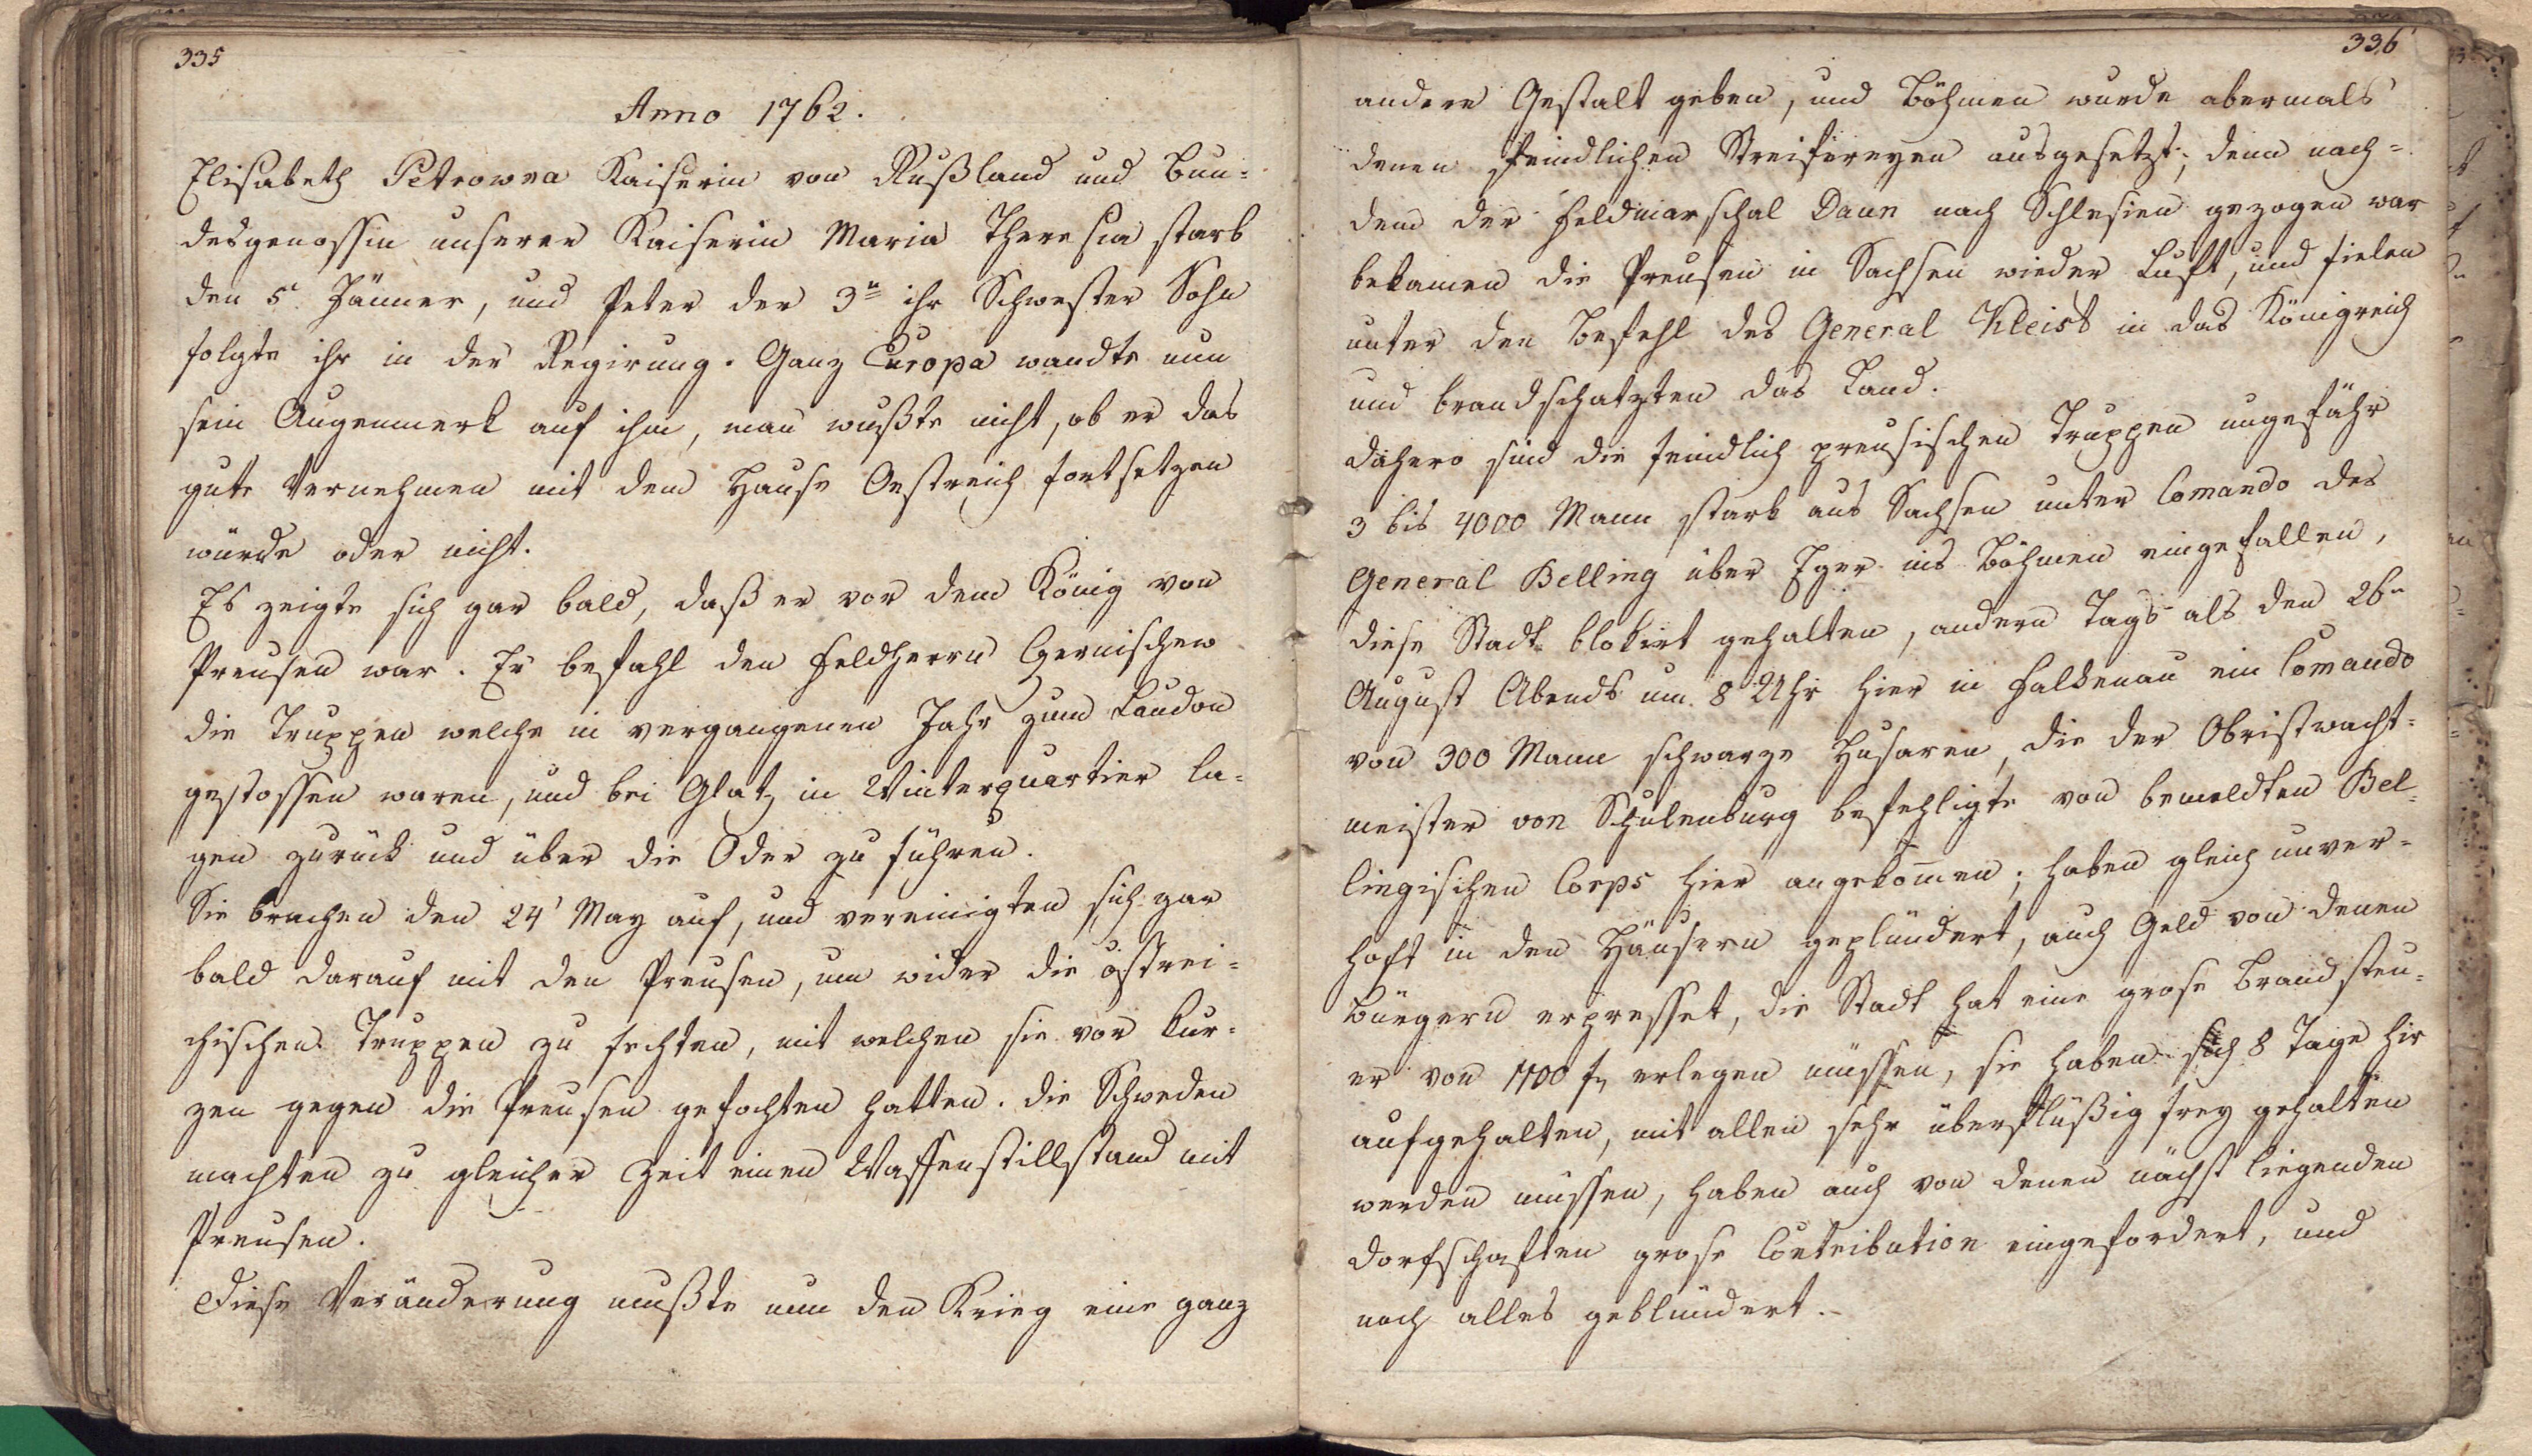 335
Anno 1762.
Elisabeth Petrowna Kaiserin von Rußland und Bun-
desgenossin unserer Kaiserin Maria Theresia starb
den 5 Jänner, und Peter der 3te ihr Schwester Sohn
folgte ihr in der Regirung. Ganz Europa wandte nun
sein Augenmerk auf ihm, man wußte nicht, ob er das
gute Vernehmen mit dem Hause Oestreich fortsetzen
würde oder nicht.
Es zeigte sich gar bald, daß er vor dem König von
Preusen war. Er befahl den Feldherrn Czernischew
die Truppen welche in vergangenen Jahr zum Laudon
gestossen waren, und bei Glatz in Winterquartier la-
gen zurück und über die Oder zu führen.
Sie brachen den 24' May auf, und vereinigten sich gar
bald darauf mit den Preusen, um wider die östrei-
chischen Truppen zu fechten, mit welchen sie vor kur-
zen gegen die Preusen gefochten hatten. die Schweden
machten zu gleicher Zeit einen Waffenstillstand mit
Preusen.
Diese Veränderung mußte nun den Krieg eine ganz
336
andere Gestalt geben, und Böhmen wurde abermals
denen feindlichen Streifereyen ausgesetzt; denn nach-
dem der Feldmarschal Daun nach Schlesien gezogen war
bekamen die Preusen in Sachsen wieder Luft, und fielen
unter den Befehl des General Kleist in das Königreich
und brandschatzten das Land.
dahero sind die feindlich preusischen Truppen ungefähr
3 bis 4000 Mann stark aus Sachsen unter Comando des
General Belling über Eger ins Böhmen eingefallen,
diese Stadt blokirt gehalten, andern Tags als den 26n
August Abends um 8 Uhr hier in Falkenau ein Comando
von 300 Mann schwarze Husaren, die der Obristwacht-
meister von Schulenburg befehligte von bemeldten Bel-
lingischen Corps hier angekom̅en; haben gleich unver-
hoft in den Häusern geplündert, auch Geld von denen
Bürgern erpresset, die Stadt hat eine grose Brandsteu-
er von 1100 f erlegen müssen, sie haben sich 8 Tage hir
aufgehalten, mit allen sehr überflüßig frey gehalten
werden müssen, haben auch von denen nächst liegenden
dorfschaften grose Contribution eingefordert, und
noch alles geblündert.